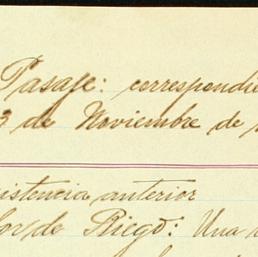 Pasaje: correspondie
3 de Noviembre de
istencia anterior
de Riego: Una